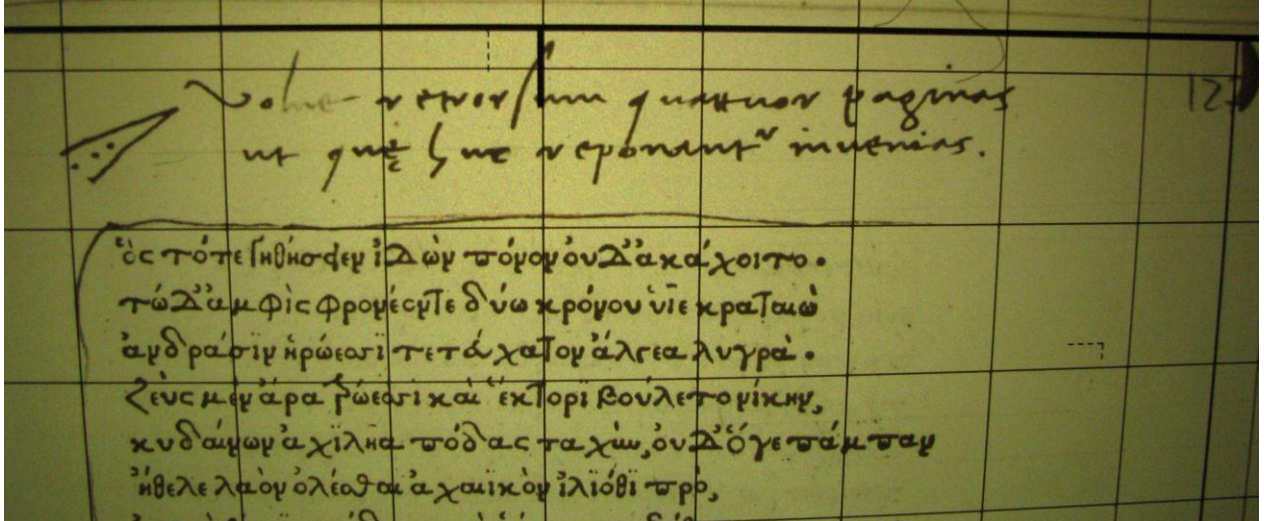 Volue retrorsum quattuor paginas
ut quę huc reponantʳ inuenias.
ὃς τότε γηθήσειεν ἰδὼν πόνον οὐδ' ἀκάχοιτο.
τὼ δ' ἀμφὶς φρονέοντε δύω κρόνου υἷε κραταιὼ
ἀνδράσϊν ἡρώεσσι τετεύχατον ἄλγεα λυγρά.
ζεὺς μὲν ἄρα τρώεσσι καὶ ἕκτορϊ βούλετο νίκην,
κυδαίνων ἀχϊλῆα πόδας ταχὺν, οὐδ' ὅγε πάμπαν
ἤθελε λαὸν ὀλέσθαι ἀχαιϊκὸν ἰλϊόθϊ πρό,